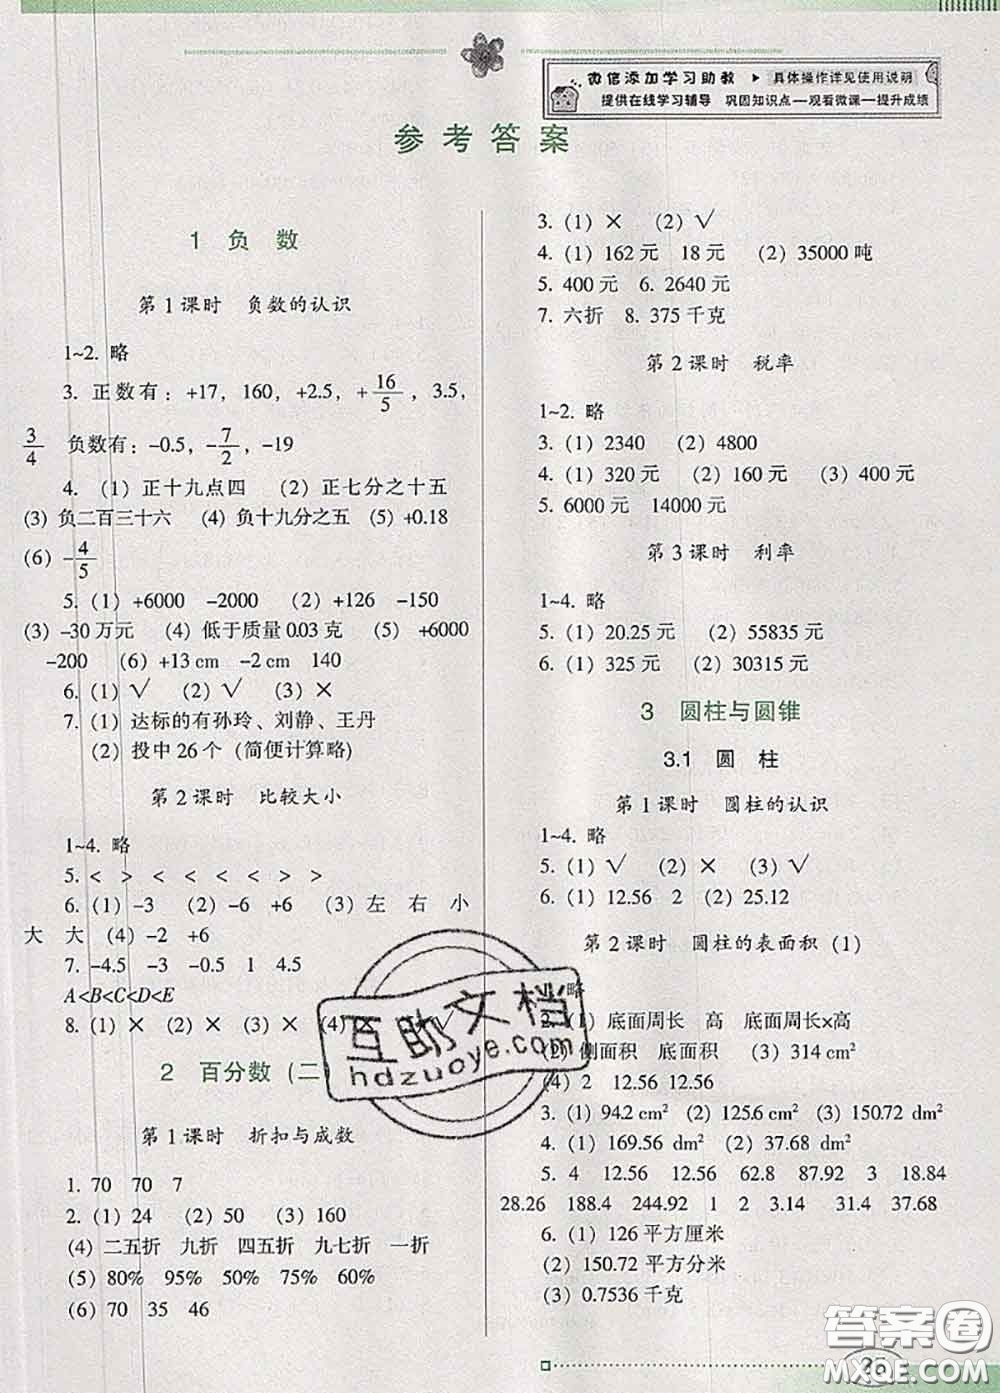 微信添加学习助教 ▶ 具体操作详见使用说明
提供在线学习辅导 巩固知识点—观看微课—提升成绩
参考答案
1 负 数
第1课时 负数的认识
1~2. 略
3. 正数有：+17，160，+2.5，+16/5，3.5，
3/4 负数有：-0.5，-7/2，-19
4. (1) 正十九点四 (2) 正七分之十五
(3) 负二百三十六 (4) 负十九分之五 (5) +0.18
(6) -4/5
5. (1) +6000 -2000 (2) +126 -150
(3) -30万元 (4) 低于质量0.03克 (5) +6000
-200 (6) +13 cm -2 cm 140
6. (1) √ (2) √ (3) ×
7. (1) 达标的有孙玲、刘静、王丹
(2) 投中26个 (简便计算略)
第2课时 比较大小
1~4. 略
5. < > < < < < > >
6. (1) -3 (2) -6 +6 (3) 左 右 小
大 大 (4) -2 +6
7. -4.5 -3 -0.5 1 4.5
A<B<C<D<E
8. (1) × (2) × (3) × (4) × √
2 百分数 (二
第1课时 折扣与成数
1. 70 70 7
2. (1) 24 (2) 50 (3) 160
(4) 二五折 九折 四五折 九七折 一折
(5) 80% 95% 50% 75% 60%
(6) 70 35 46
3. (1) × (2) √
4. (1) 162元 18元 (2) 35000吨
5. 400元 6. 2640元
7. 六折 8. 375千克
第2课时 税率
1~2. 略
3. (1) 2340 (2) 4800
4. (1) 320元 (2) 160元 (3) 400元
5. 6000元 14000元
第3课时 利率
1~4. 略
5. (1) 20.25元 (2) 55835元
6. (1) 325元 (2) 30315元
3 圆柱与圆锥
3.1 圆 柱
第1课时 圆柱的认识
1~4. 略
5. (1) √ (2) × (3) √
6. (1) 12.56 2 (2) 25.12
第2课时 圆柱的表面积 (1)
1. 略
2. (1) 底面周长 高 底面周长×高
(2) 侧面积 底面积 (3) 314 cm²
(4) 2 12.56 12.56
3. (1) 94.2 cm² (2) 125.6 cm² (3) 150.72 dm²
4. (1) 169.56 dm² (2) 37.68 dm²
5. 4 12.56 12.56 62.8 87.92 3 18.84
28.26 188.4 244.92 1 2 3.14 31.4 37.68
6. (1) 126平方厘米
(2) 150.72平方分米
(3) 0.7536千克
互助文档
hdzuoye.com
答案圈
MXQE.COM